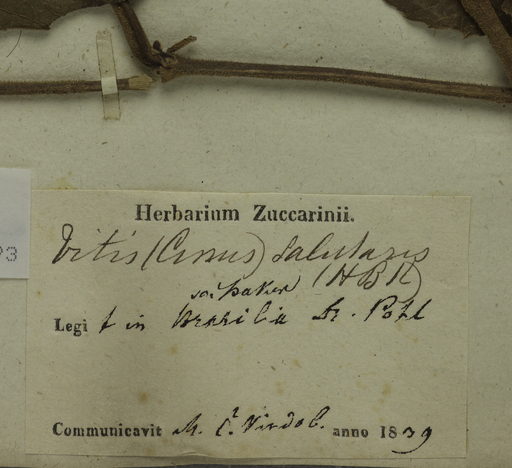 Herbarium Zuccarinii.
Vitis (Cissus) salutaris
(HBK)
Baker
Legit in Brasilia Dr. Pohl
Communicavit M. C. Vindob. anno 1839